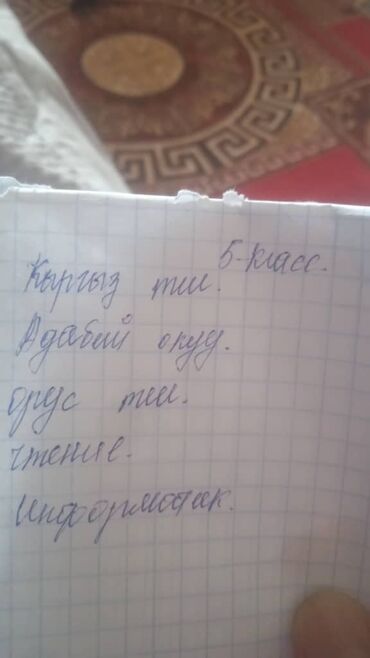 5-класс.
Кыргыз тил.
Адабий окуу.
орус тил.
чтение.
Информатик.